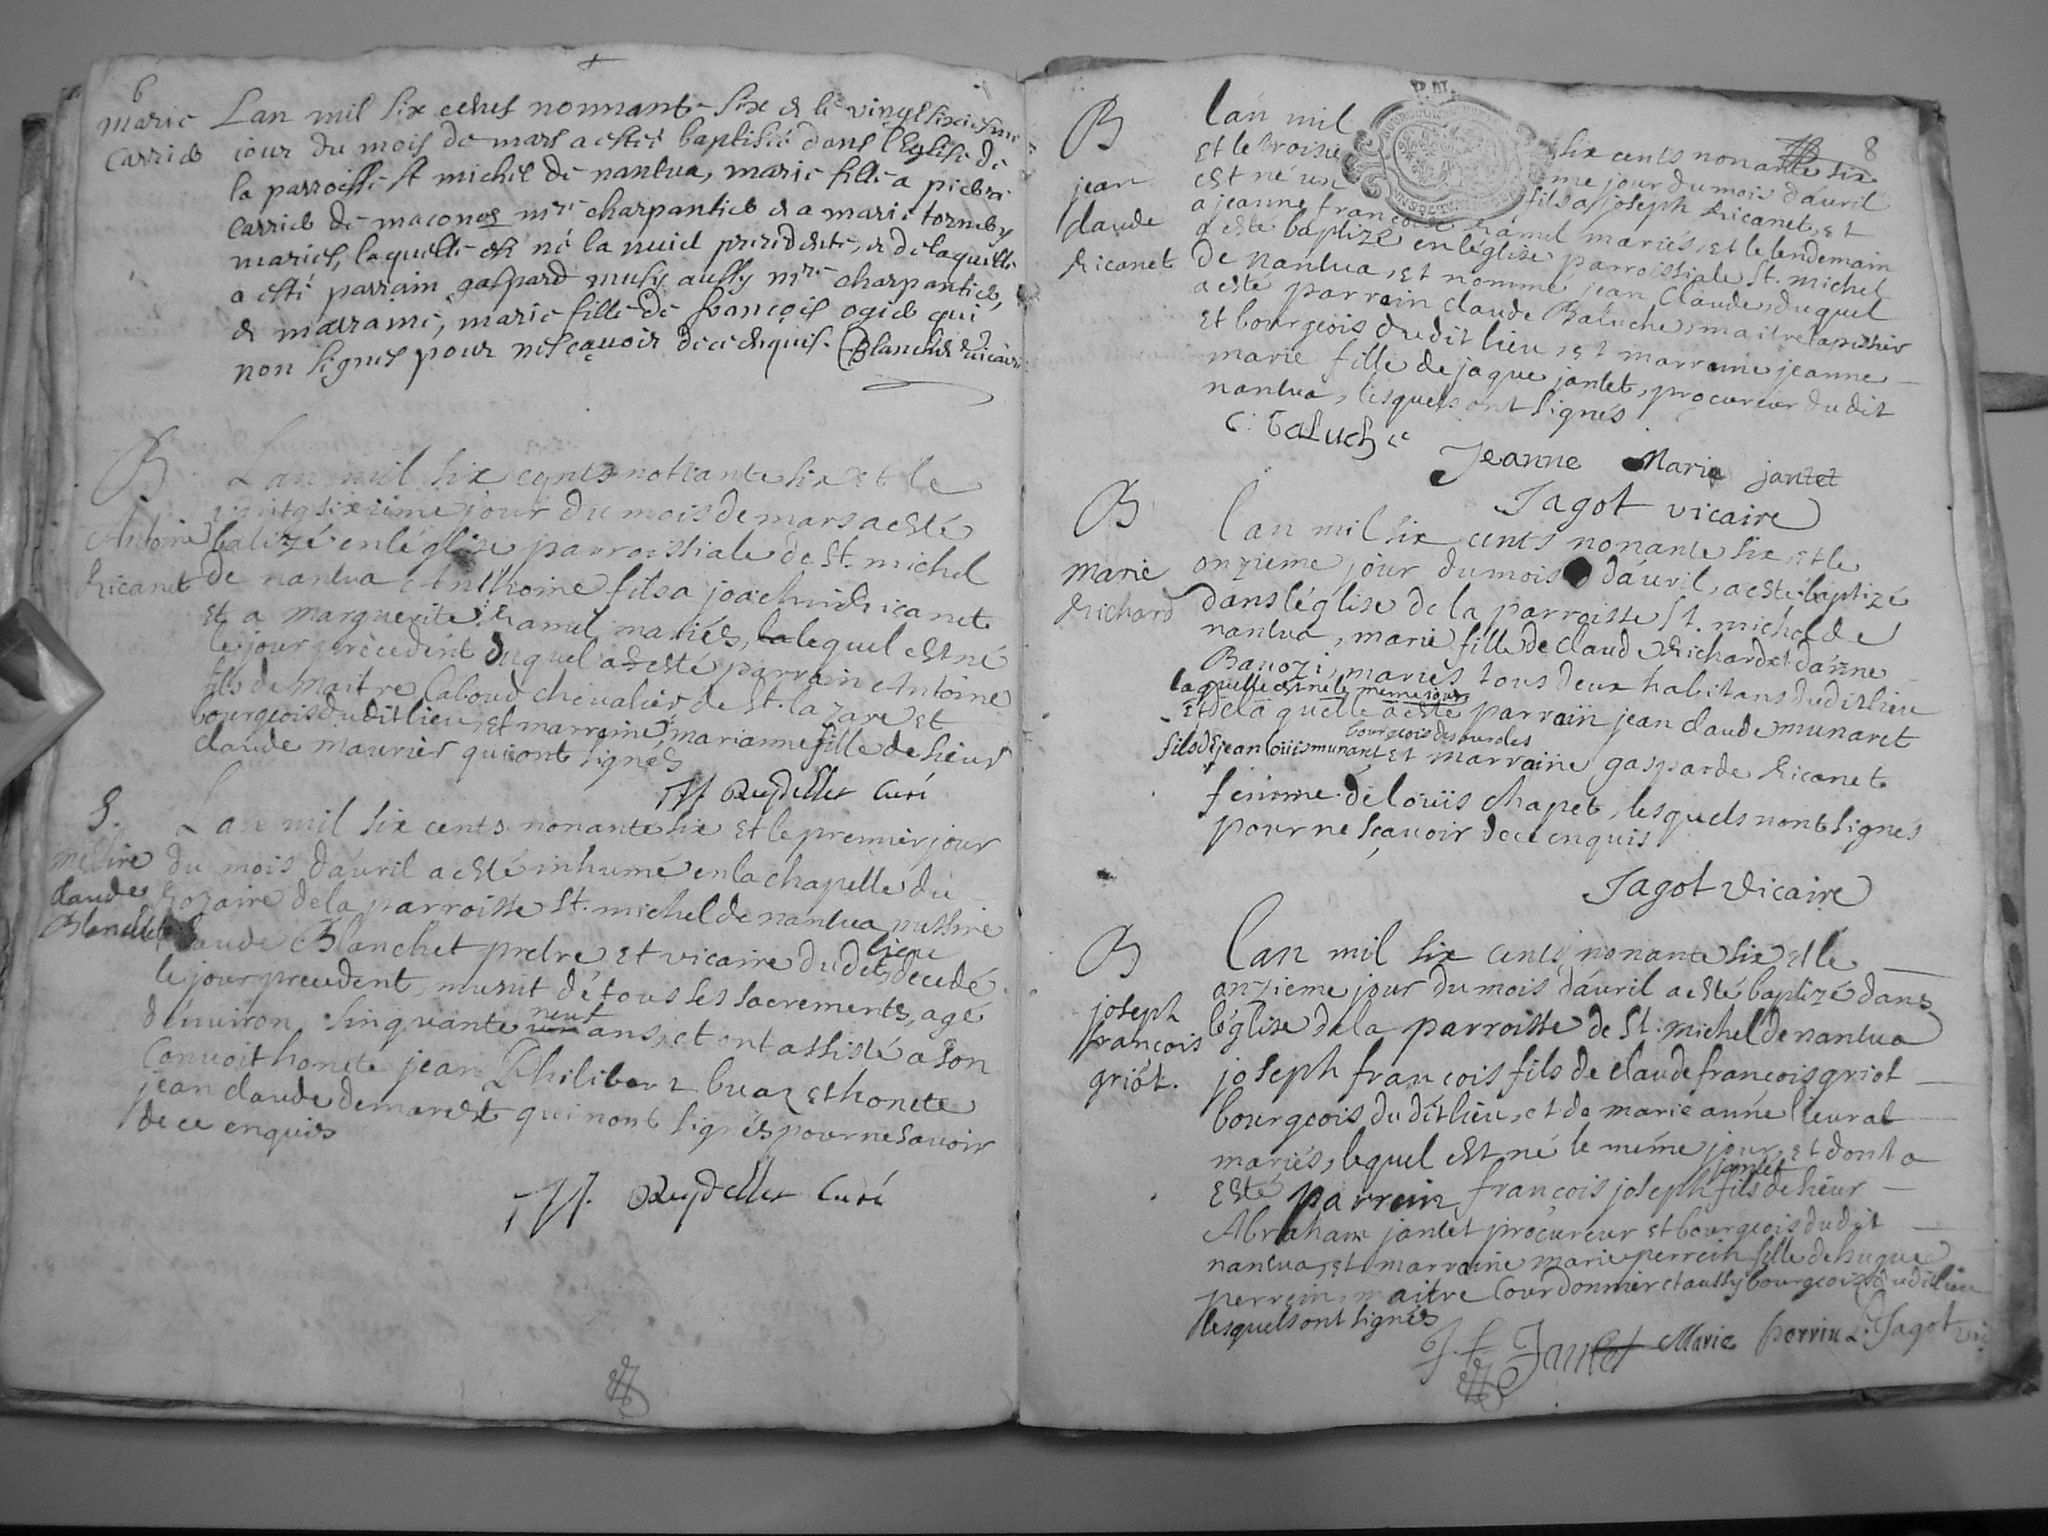 B
marie
Carrier
Lan mil six cents nonnante six et le vingt sixiesme
jour du mois de mars a estée baptisée dans l'Eglise de
la parroisse st michel de nantua, marie fille a pierre
Carrier de maconer mre charpantier et a marie
mariés, laquelle est né la nuict precedente, et de laquelle
a esté parrain gaspard musy aussy mre charpantier,
et marraine, marie fille de françois ogier qui
non signes pour ne scavoir de ce enquis. Blanchet vicaire
B
Antoine
Ricanet
Lan mil six cents nonante six et le
vint sixzième jour du mois de mars a esté
batizé en léglise parroissiale de St. michel
de nantua Anthoine fils a joachin Ricanet
et a marguerite ramel mariés, la lequel est né
le jour précédent duquel a esté parrain Antoine
fils de maitre Caboud chevalier de St. lazare et
bourgeois du dit lieu, et marraine marianne fille de sieur
claude maurier qui ont signés
Ruydellet Curé
S.
messire
claude
Blanchet
Lan mil six cents nonante six et le premier jour
du mois dávril a esté inhumé en la chapelle du
Rozaire de la parroisse St. michel de nantua messire
claude Blanchet pretre et vicaire du dit lieu decedé
le jour precedent, munit dé tous les sacrements, agé
dénviron sinquante neuf ans, et ont assisté a son
Convoit honete jean Philibert buaz et honete
jean claude demarest qui nont signés pour ne savoir
de ce enquis
Ruydellet Curé
8
B
jean
claude
Ricanet
lan mil six cents nonante six
et le troisieme jour du mois dávril
est né un fils a joseph Ricanet, et
a jeanne françoise ramel mariés, et le lendemain
a esté baptizé en léglise parroissiale St. michel
de nantua, et nommé jean Claude, duquel
a esté parrain claude Baluche, maitre tapissier
et bourgeois du dit lieu, et marraine jeanne
marie fille de jaque jantet, procureur du dit
nantua, lesquels ont signés
C. Baluche
Jeanne Marie jantet
Jagot vicaire
B
marie
Richard
lan mil six cents nonante six et le
onzieme jour du mois dávril, a esté baptizé
dans léglise de la parroisse St. michel de
nantua, marie fille de claude Richard et dánne
Bavozi, mariés tous deux habitans du dit lieu
laquelle est né le meme jour
et de la quelle a esté parrain jean claude munaret
bourgeois des
fils de jean loüis munaret et marraine gasparde Ricanet
femme de loüis chapet, lesquels nont signés
pour ne sçavoir de ce enquis
Jagot vicaire
B
joseph
françois
griot.
lan mil six cents nonante six et le
onzieme jour du mois dávril a esté baptizé dans
léglise de la parroisse de St. michel de nantua
joseph françois fils de claude francois griot
bourgeois du dit lieu, et de marie anne lieurat
mariés, lequel est né le méme jour, et dont a
jantet
esté parrein françois joseph fils de sieur
Abraham jantet procureur et bourgeois du dit
nantua, et marraine marie perrein fille de hugue
perrein, maitre Courdonnier et aussy bourgeois du dit lieu
lesquels ont signés
J. f. Jantet Marie perrin Jagot vic